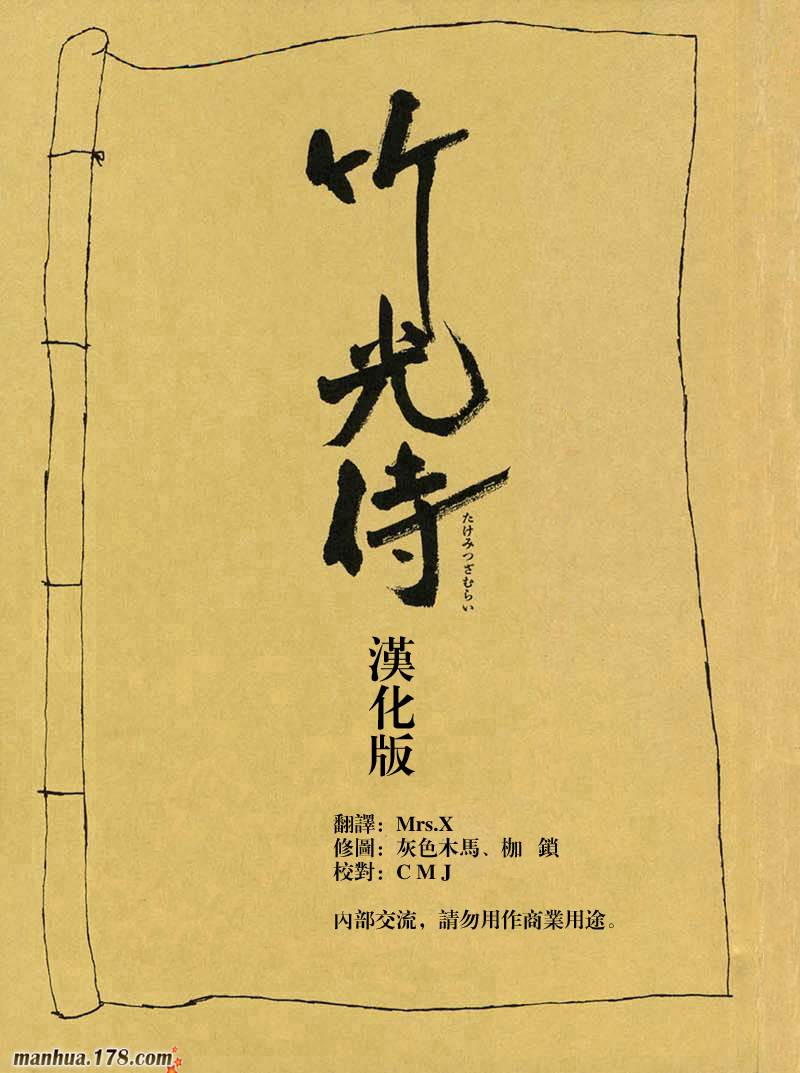 竹光侍
たけみつざむらい
漢化版
翻譯：Mrs.X
修圖：灰色木馬、枷 鎖
校對：C M J
內部交流，請勿用作商業用途。
manhua.178.com